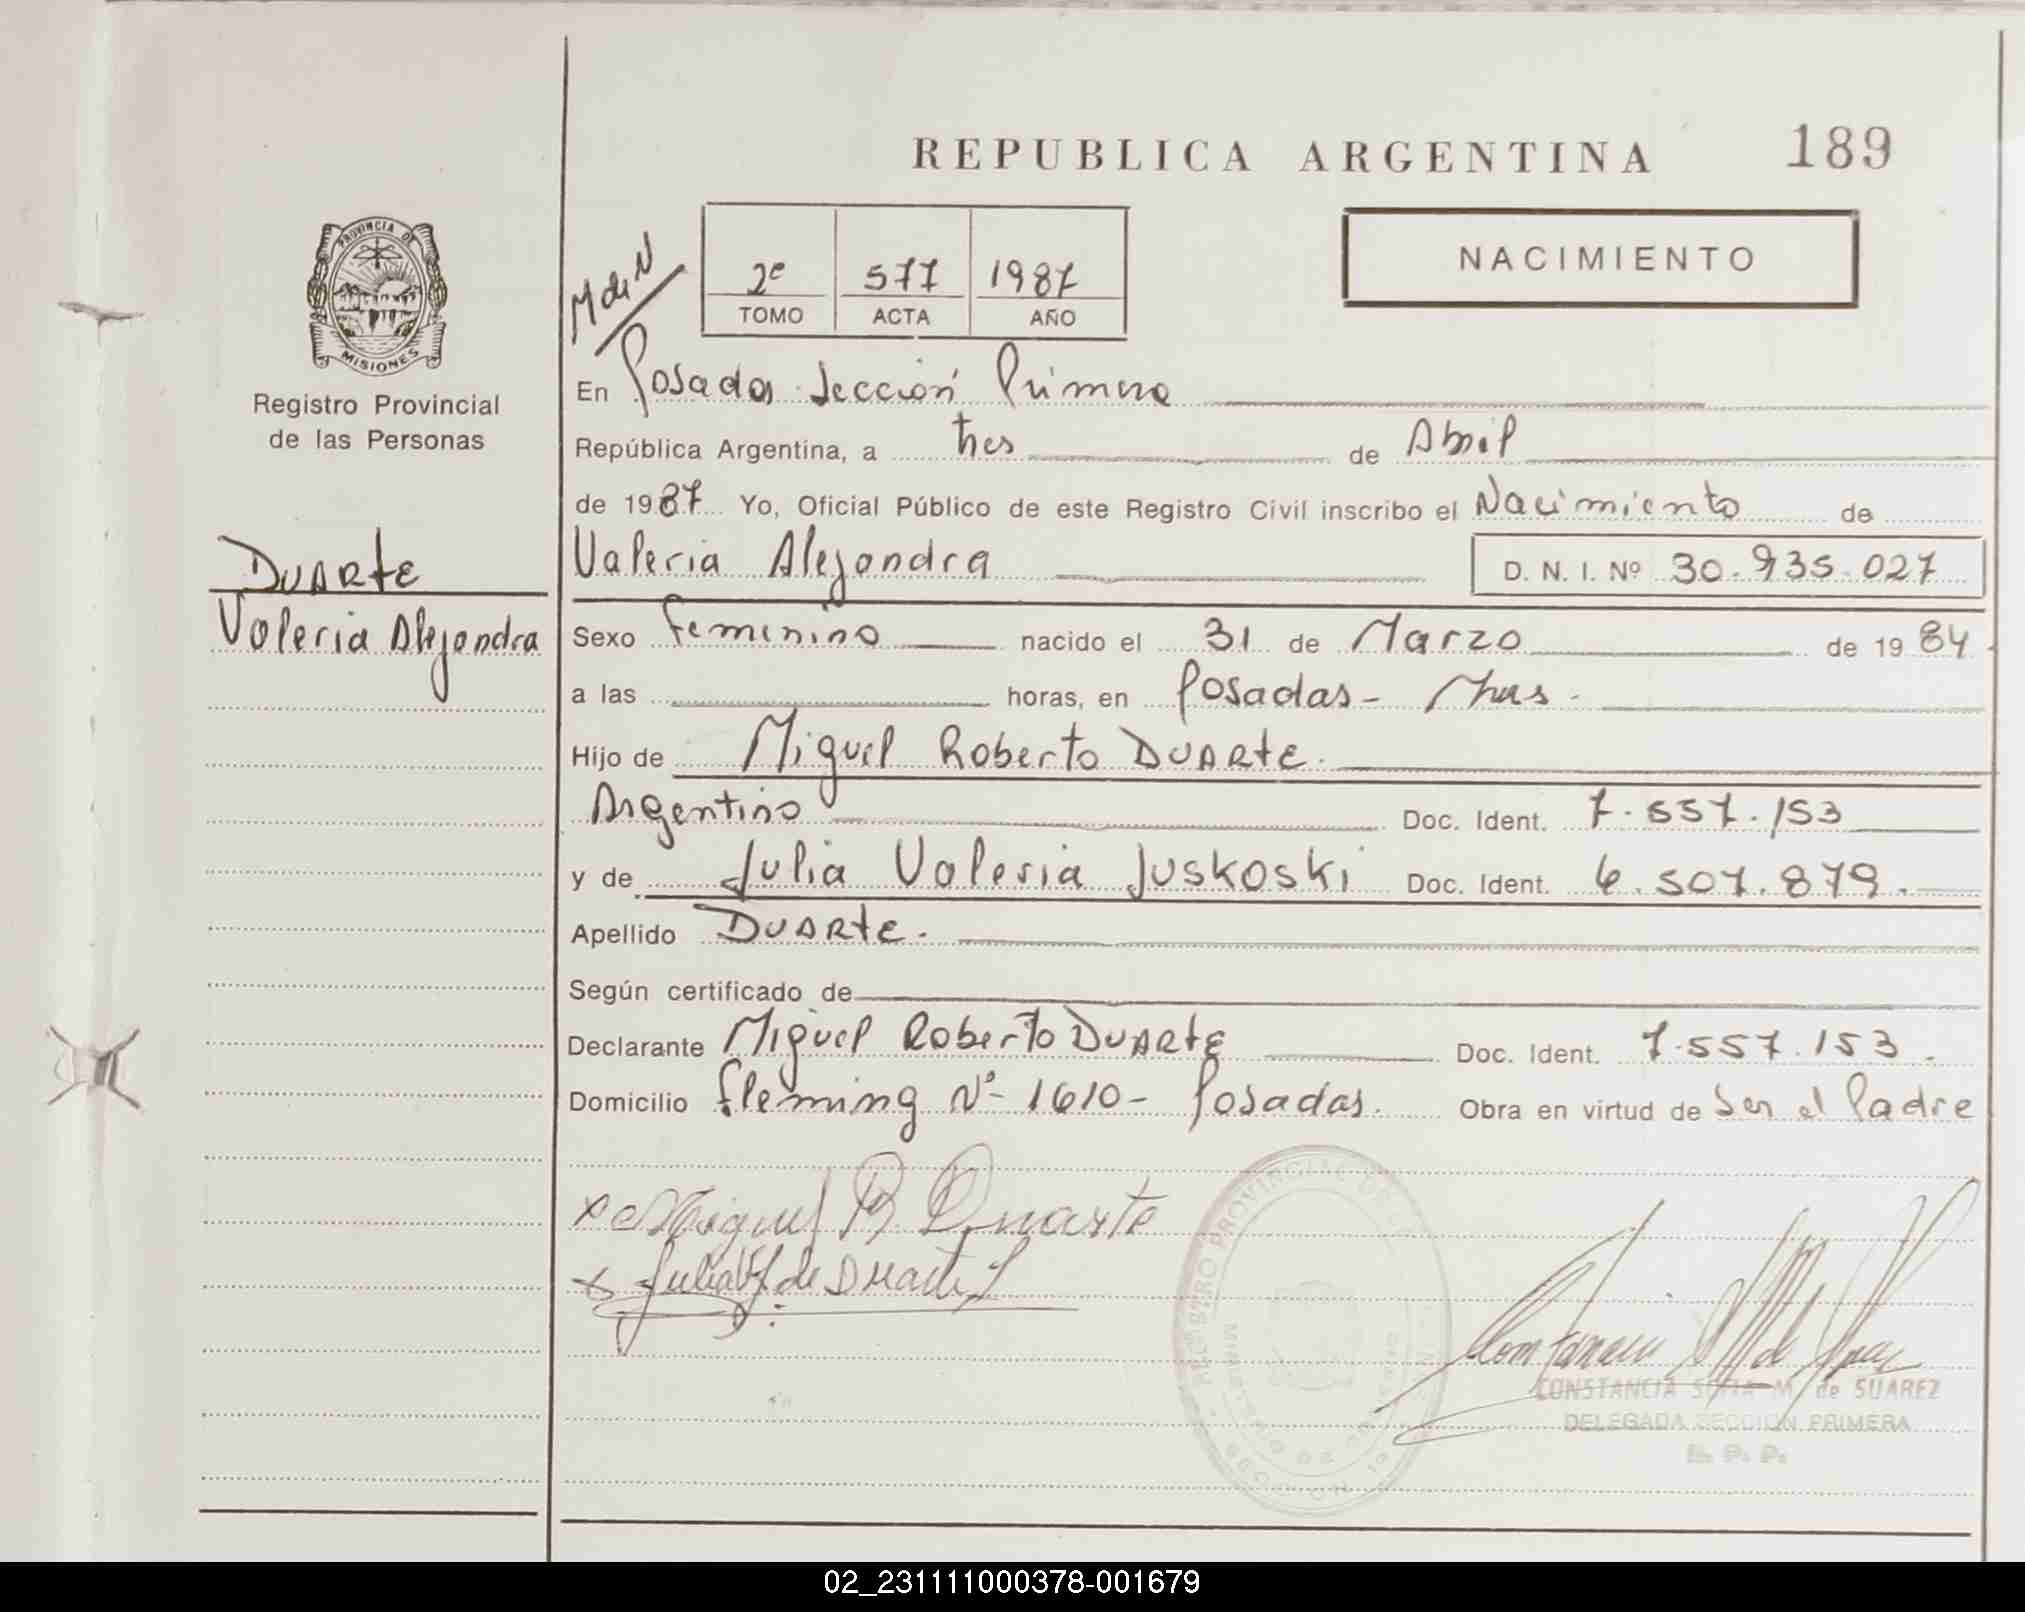 REPUBLICA ARGENTINA 189
NACIMIENTO
M de N
2º 577 1987
TOMO ACTA AÑO
PROVINCIA DE
MISIONES
Registro Provincial
de las Personas
DUARTE
Valeria Alejandra
En Posadas Sección Primera
República Argentina, a tres de Abril
de 1987 Yo, Oficial Público de este Registro Civil inscribo el Nacimiento de
Valeria Alejandra D. N. I. Nº 30.935.027
Sexo femenino nacido el 31 de Marzo de 1984
a las horas, en Posadas - Mnes -
Hijo de Miguel Roberto DUARTE.
Argentino Doc. Ident. 7.557.153
y de Julia Valeria Juskoski Doc. Ident. 6.507.879.
Apellido DUARTE.
Según certificado de
Declarante Miguel Roberto DUARTE Doc. Ident. 7.557.153.
Domicilio fleming Nº 1610 - Posadas. Obra en virtud de Ser el Padre
x Miguel R Duarte
x Julia V J de Duarte
CONSTANCIA SOFIA M. de SUAREZ
DELEGADA SECCION PRIMERA
R. P. P.
02_231111000378-001679